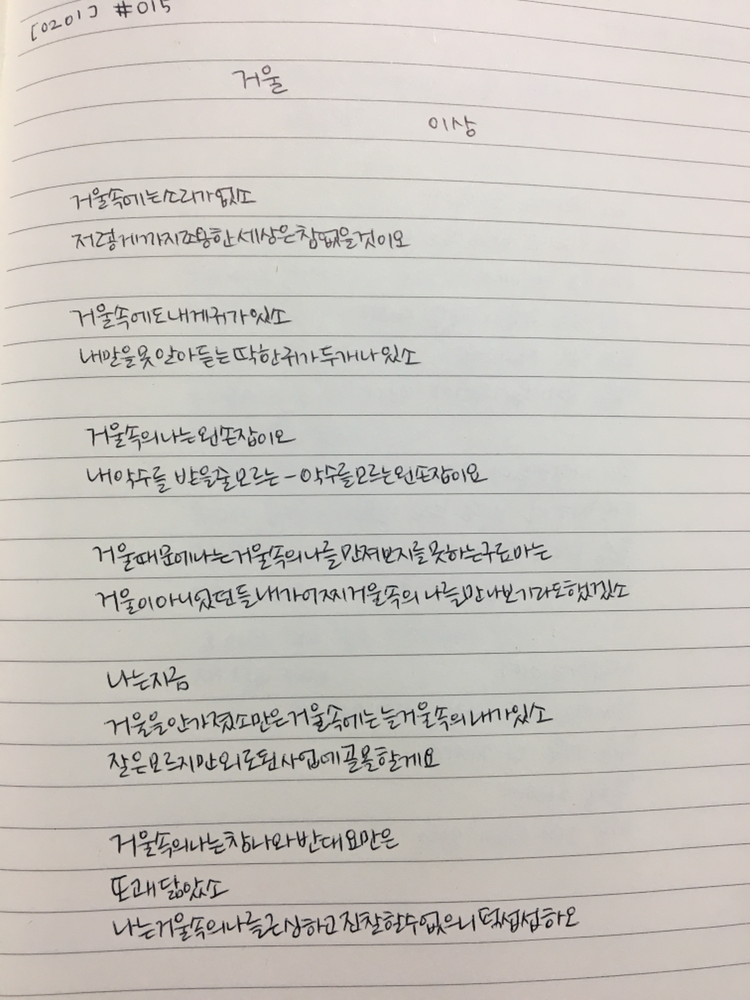 [0201] #015
거울
이상
거울속에는소리가없소
저렇게까지조용한세상은참없을것이오
거울속에도내게귀가있소
내말을못알아듣는딱한귀가두개나있소
거울속의나는왼손잡이오
내악수를 받을줄모르는-악수를모르는왼손잡이요
거울때문에나는거울속의나를만져보지를못하는구료마는
거울이아니었던들내가어찌거울속의 나를만나보기라도했겠소
나는지금
거울을안가졌소만은거울속에는늘거울속의내가있소
잘은모르지만외로된사업에골몰할게요
거울속의나는참나와반대요만은
또꽤닮았소
나는거울속의나를근심하고진찰할수없으니퍽섭섭하오